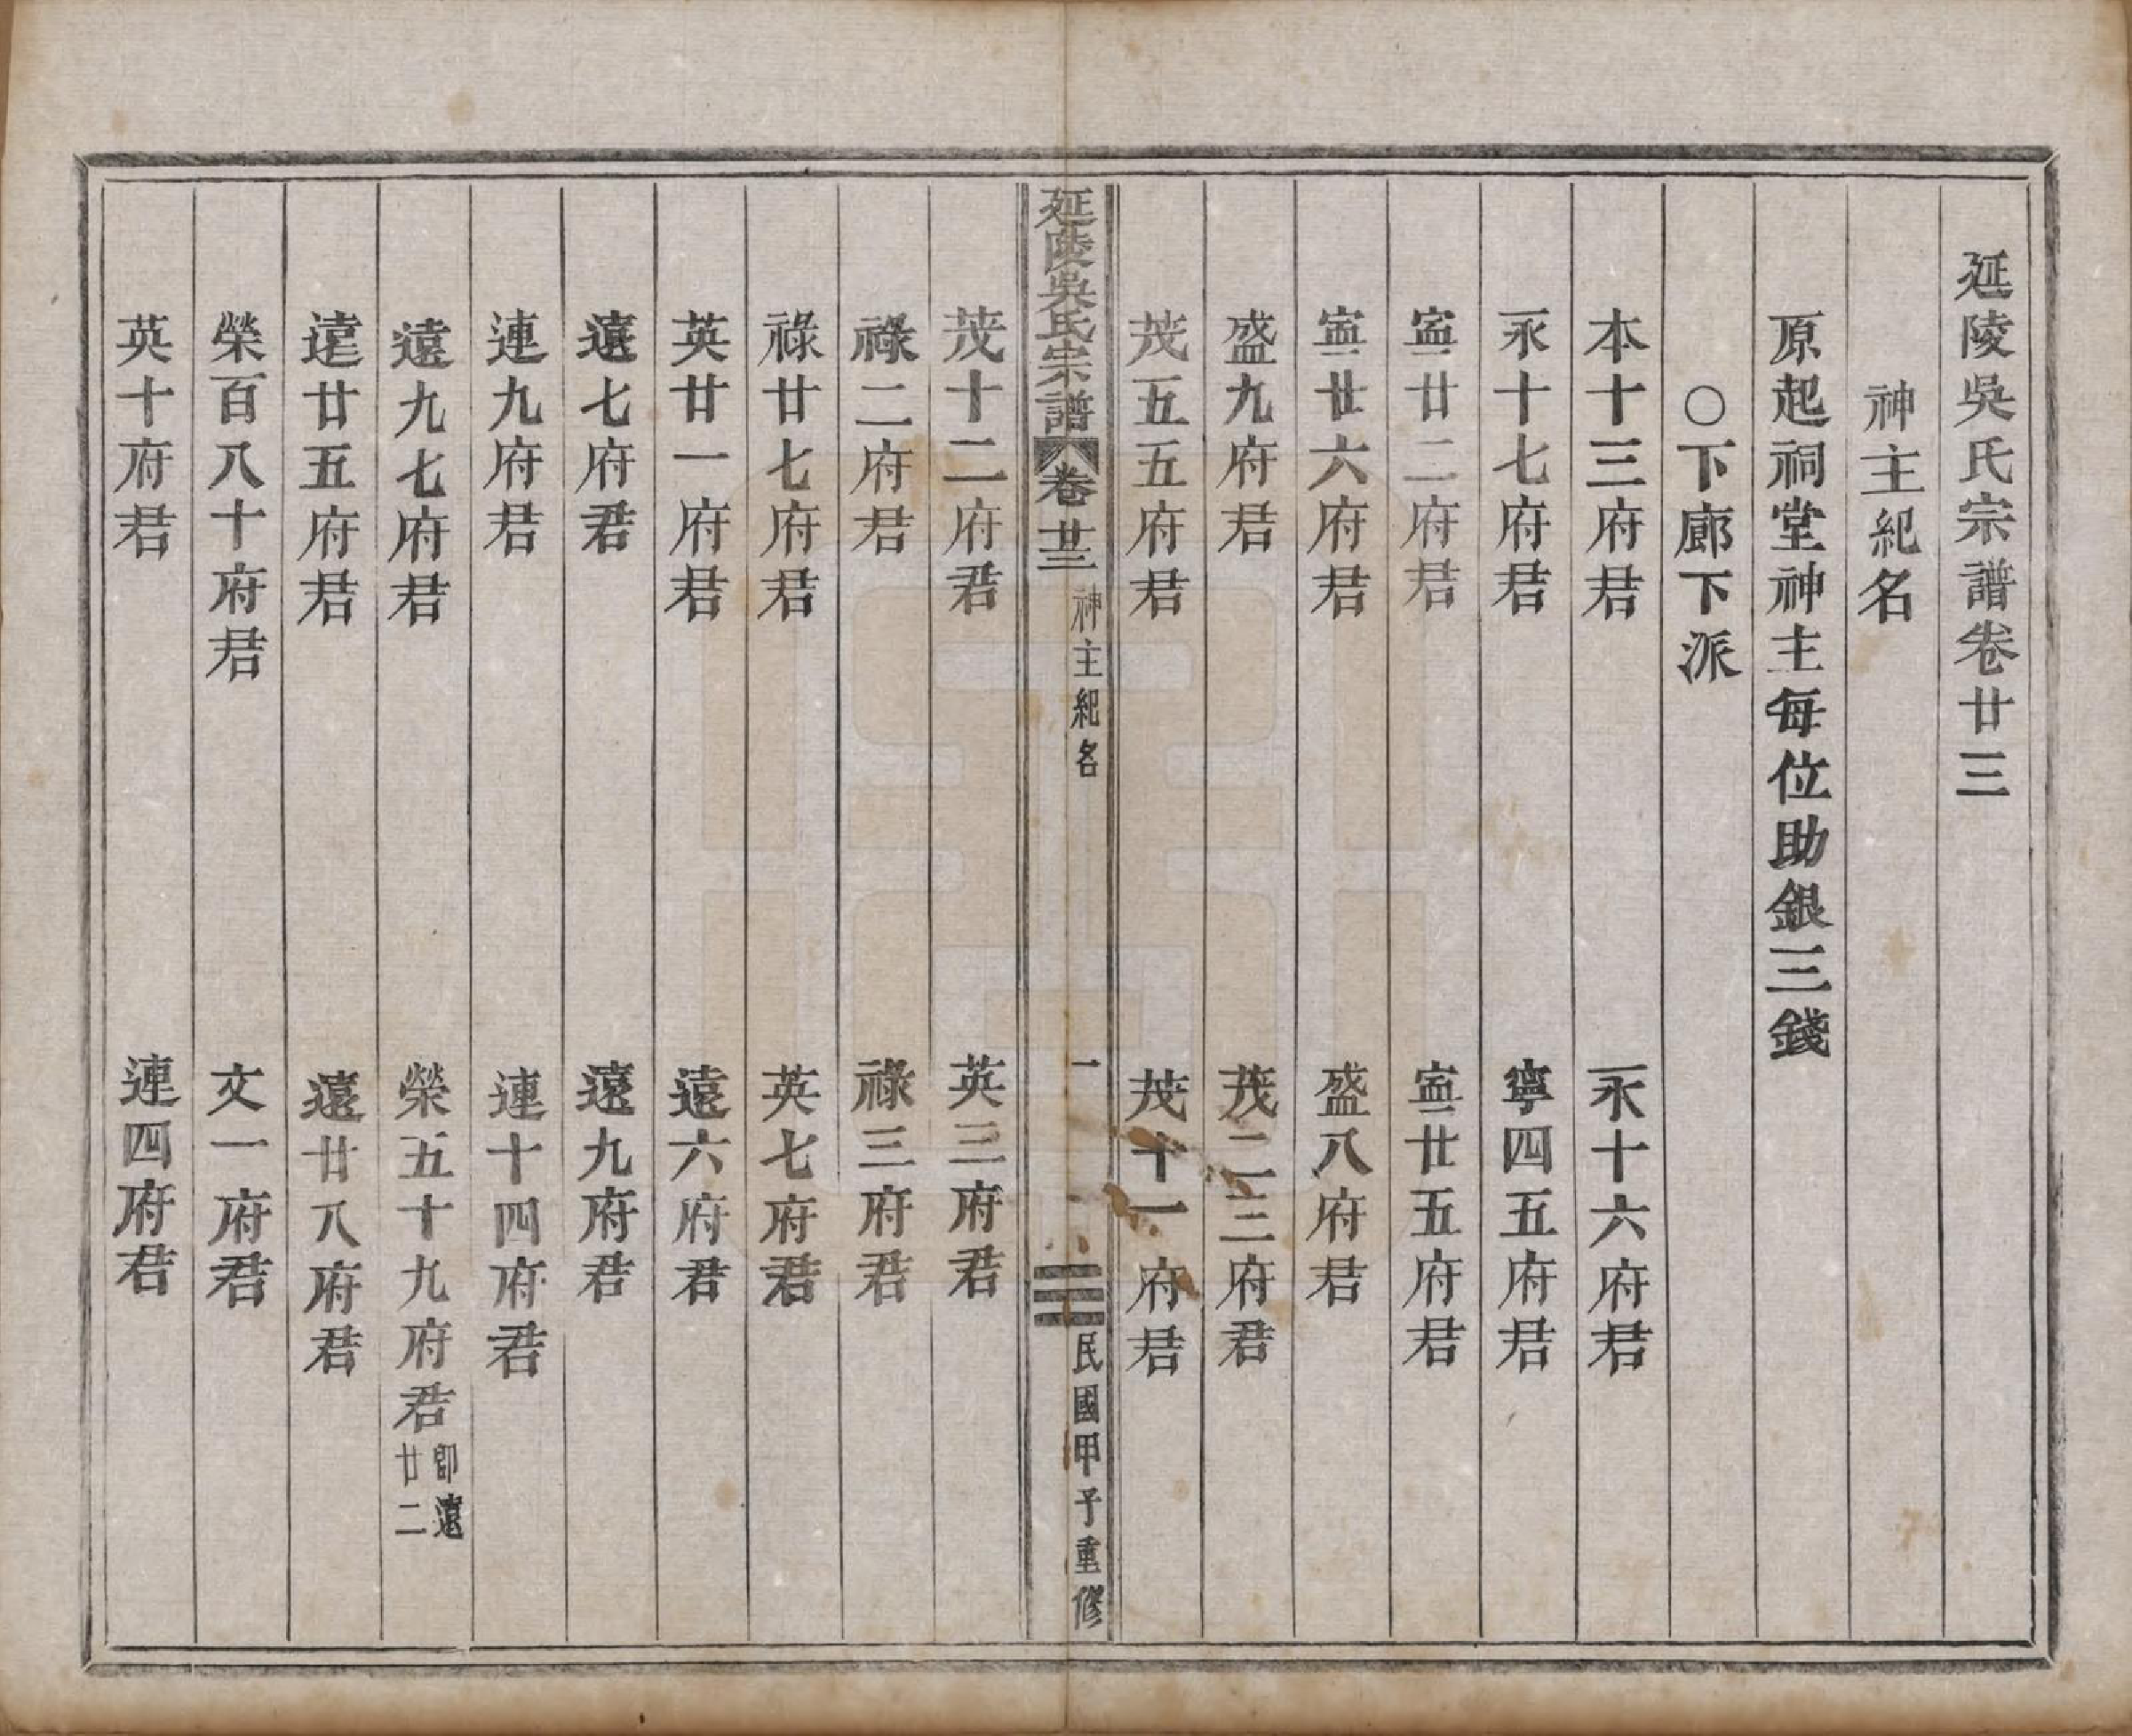 延陵吳氏宗譜卷廿三
神主紀名
原起祠堂神主每位助銀三錢
○下廊下派
本十三府君　永十六府君
永十七府君　寧四五府君
寍廿二府君　寍廿五府君
寍廿六府君　盛八府君
盛九府君　茂二三府君
茂五五府君　茂十一府君
延陵吳氏宗譜　卷廿三　神主紀名　一　民國甲子重修
茂十二府君　英三府君
祿二府君　祿三府君
祿廿七府君　英七府君
英廿一府君　遠六府君
遠七府君　遠九府君
連九府君　連十四府君
遠九七府君　榮五十九府君　卽遠廿二
遠廿五府君　遠廿八府君
榮百八十府君　文一府君
英十府君　連四府君